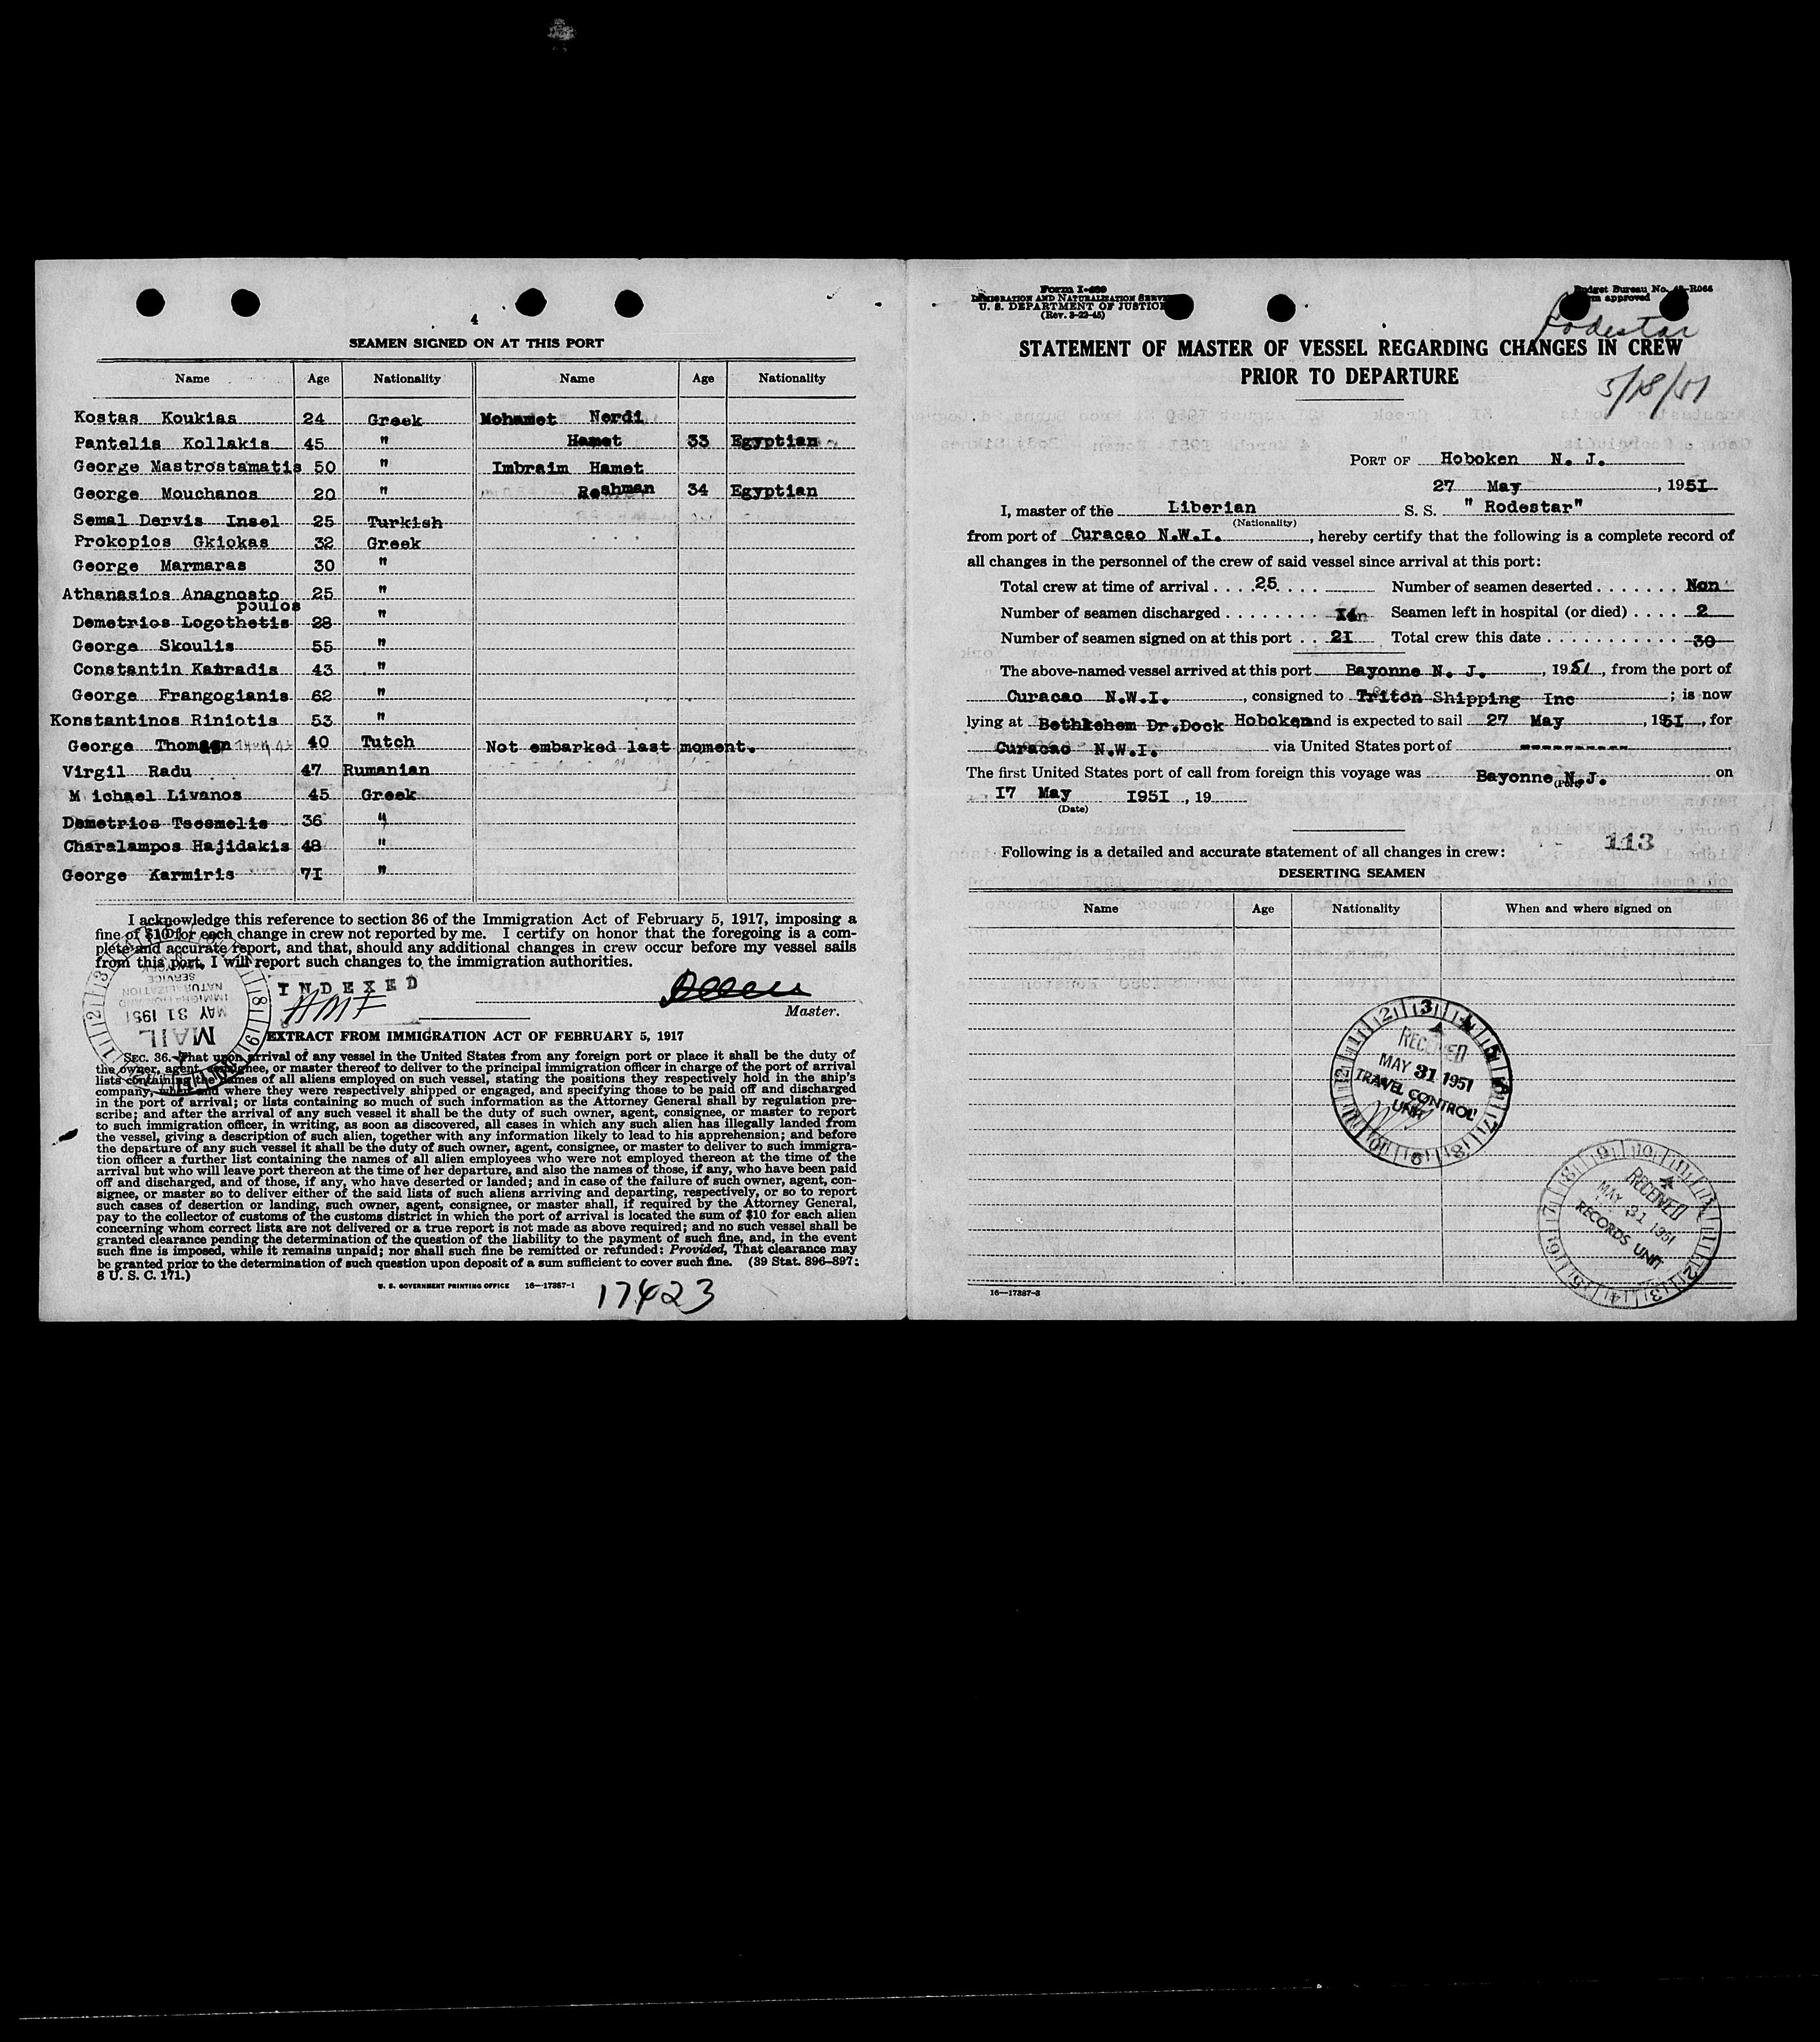 4
SEAMEN SIGNED ON AT THIS PORT
Name Age Nationality Name Age Nationality
Kostas Koukias 24 Greek Mohamet Nerdi
Pantelis Kollakis 45 " Hamet 33 Egyptian
George Mastrostamatis 50 " Imbraim Hamet
George Mouchanos 20 " Reshman 34 Egyptian
Semal Dervis Insel 25 Turkish
Prokopios Gkiokas 32 Greek
George Marmaras 30 "
Athanasios Anagnosto 25 "
poulos
Demetrios Logothetis 28 "
George Skoulis 55 "
Constantin Katradis 43 "
George Frangogianis 62 "
Konstantinos Riniotis 53 "
George 40 Tutch Not embarked last moment.
Virgil Radu 47 Rumanian
M ichael Livanos 45 Greek
Demetrios Tsesmelis 36 "
Charalampos Hajidakis 48 "
George Karmiris 71 "
I acknowledge this reference to section 36 of the Immigration Act of February 5, 1917, imposing a
fine of $10 for each change in crew not reported by me. I certify on honor that the foregoing is a com-
plete and accurate report, and that, should any additional changes in crew occur before my vessel sails
from this port, I will report such changes to the immigration authorities.
INDEXED
Master.
MAIL
MAY 31 1951
IMMIGRATION AND
NATURALIZATION
SERVICE
EXTRACT FROM IMMIGRATION ACT OF FEBRUARY 5, 1917
SEC. 36. That upon arrival of any vessel in the United States from any foreign port or place it shall be the duty of
the owner, agent, consignee, or master thereof to deliver to the principal immigration officer in charge of the port of arrival
lists containing the names of all aliens employed on such vessel, stating the positions they respectively hold in the ship's
company, when and where they were respectively shipped or engaged, and specifying those to be paid off and discharged
in the port of arrival; or lists containing so much of such information as the Attorney General shall by regulation pre-
scribe; and after the arrival of any such vessel it shall be the duty of such owner, agent, consignee, or master to report
to such immigration officer, in writing, as soon as discovered, all cases in which any such alien has illegally landed from
the vessel, giving a description of such alien, together with any information likely to lead to his apprehension; and before
the departure of any such vessel it shall be the duty of such owner, agent, consignee, or master to deliver to such immigra-
tion officer a further list containing the names of all alien employees who were not employed thereon at the time of the
arrival but who will leave port thereon at the time of her departure, and also the names of those, if any, who have been paid
off and discharged, and of those, if any, who have deserted or landed; and in case of the failure of such owner, agent, con-
signee, or master so to deliver either of the said lists of such aliens arriving and departing, respectively, or so to report
such cases of desertion or landing, such owner, agent, consignee, or master shall, if required by the Attorney General,
pay to the collector of customs of the customs district in which the port of arrival is located the sum of $10 for each alien
concerning whom correct lists are not delivered or a true report is not made as above required; and no such vessel shall be
granted clearance pending the determination of the question of the liability to the payment of such fine, and, in the event
such fine is imposed, while it remains unpaid; nor shall such fine be remitted or refunded: Provided, That clearance may
be granted prior to the determination of such question upon deposit of a sum sufficient to cover such fine. (39 Stat. 896-897;
8 U. S. C. 171.)
U. S. GOVERNMENT PRINTING OFFICE 16—17387-1
17423
Form I-489
IMMIGRATION AND NATURALIZATION SERVICE
U. S. DEPARTMENT OF JUSTICE
(Rev. 3-22-45)
Budget Bureau No. 43-R066
Form approved
Rodestar
STATEMENT OF MASTER OF VESSEL REGARDING CHANGES IN CREW
PRIOR TO DEPARTURE
5/18/51
PORT OF Hoboken N. J.
27 May , 1951
I, master of the Liberian S. S. " Rodestar"
(Nationality)
from port of Curacao N.W.I. , hereby certify that the following is a complete record of
all changes in the personnel of the crew of said vessel since arrival at this port:
Total crew at time of arrival .... 25 .... Number of seamen deserted ....... Non
Number of seamen discharged ........ Seamen left in hospital (or died) .... 2
Number of seamen signed on at this port .. 21 Total crew this date ............ 30
The above-named vessel arrived at this port Bayonne N. J. , 1951, from the port of
Curacao N.W.I. , consigned to Triton Shipping Inc ; is now
lying at Bethkehem Dr.Dock Hoboken and is expected to sail 27 May , 1951, for
Curacao N.W.I. via United States port of ----------
The first United States port of call from foreign this voyage was Bayonne N.J. on
(Port)
17 May 1951 , 19
(Date)
113
Following is a detailed and accurate statement of all changes in crew:
DESERTING SEAMEN
Name Age Nationality When and where signed on
RECEIVED
MAY 31 1951
TRAVEL CONTROL
UNIT
RECEIVED
MAY 31 1951
RECORDS UNIT
16—17387-3